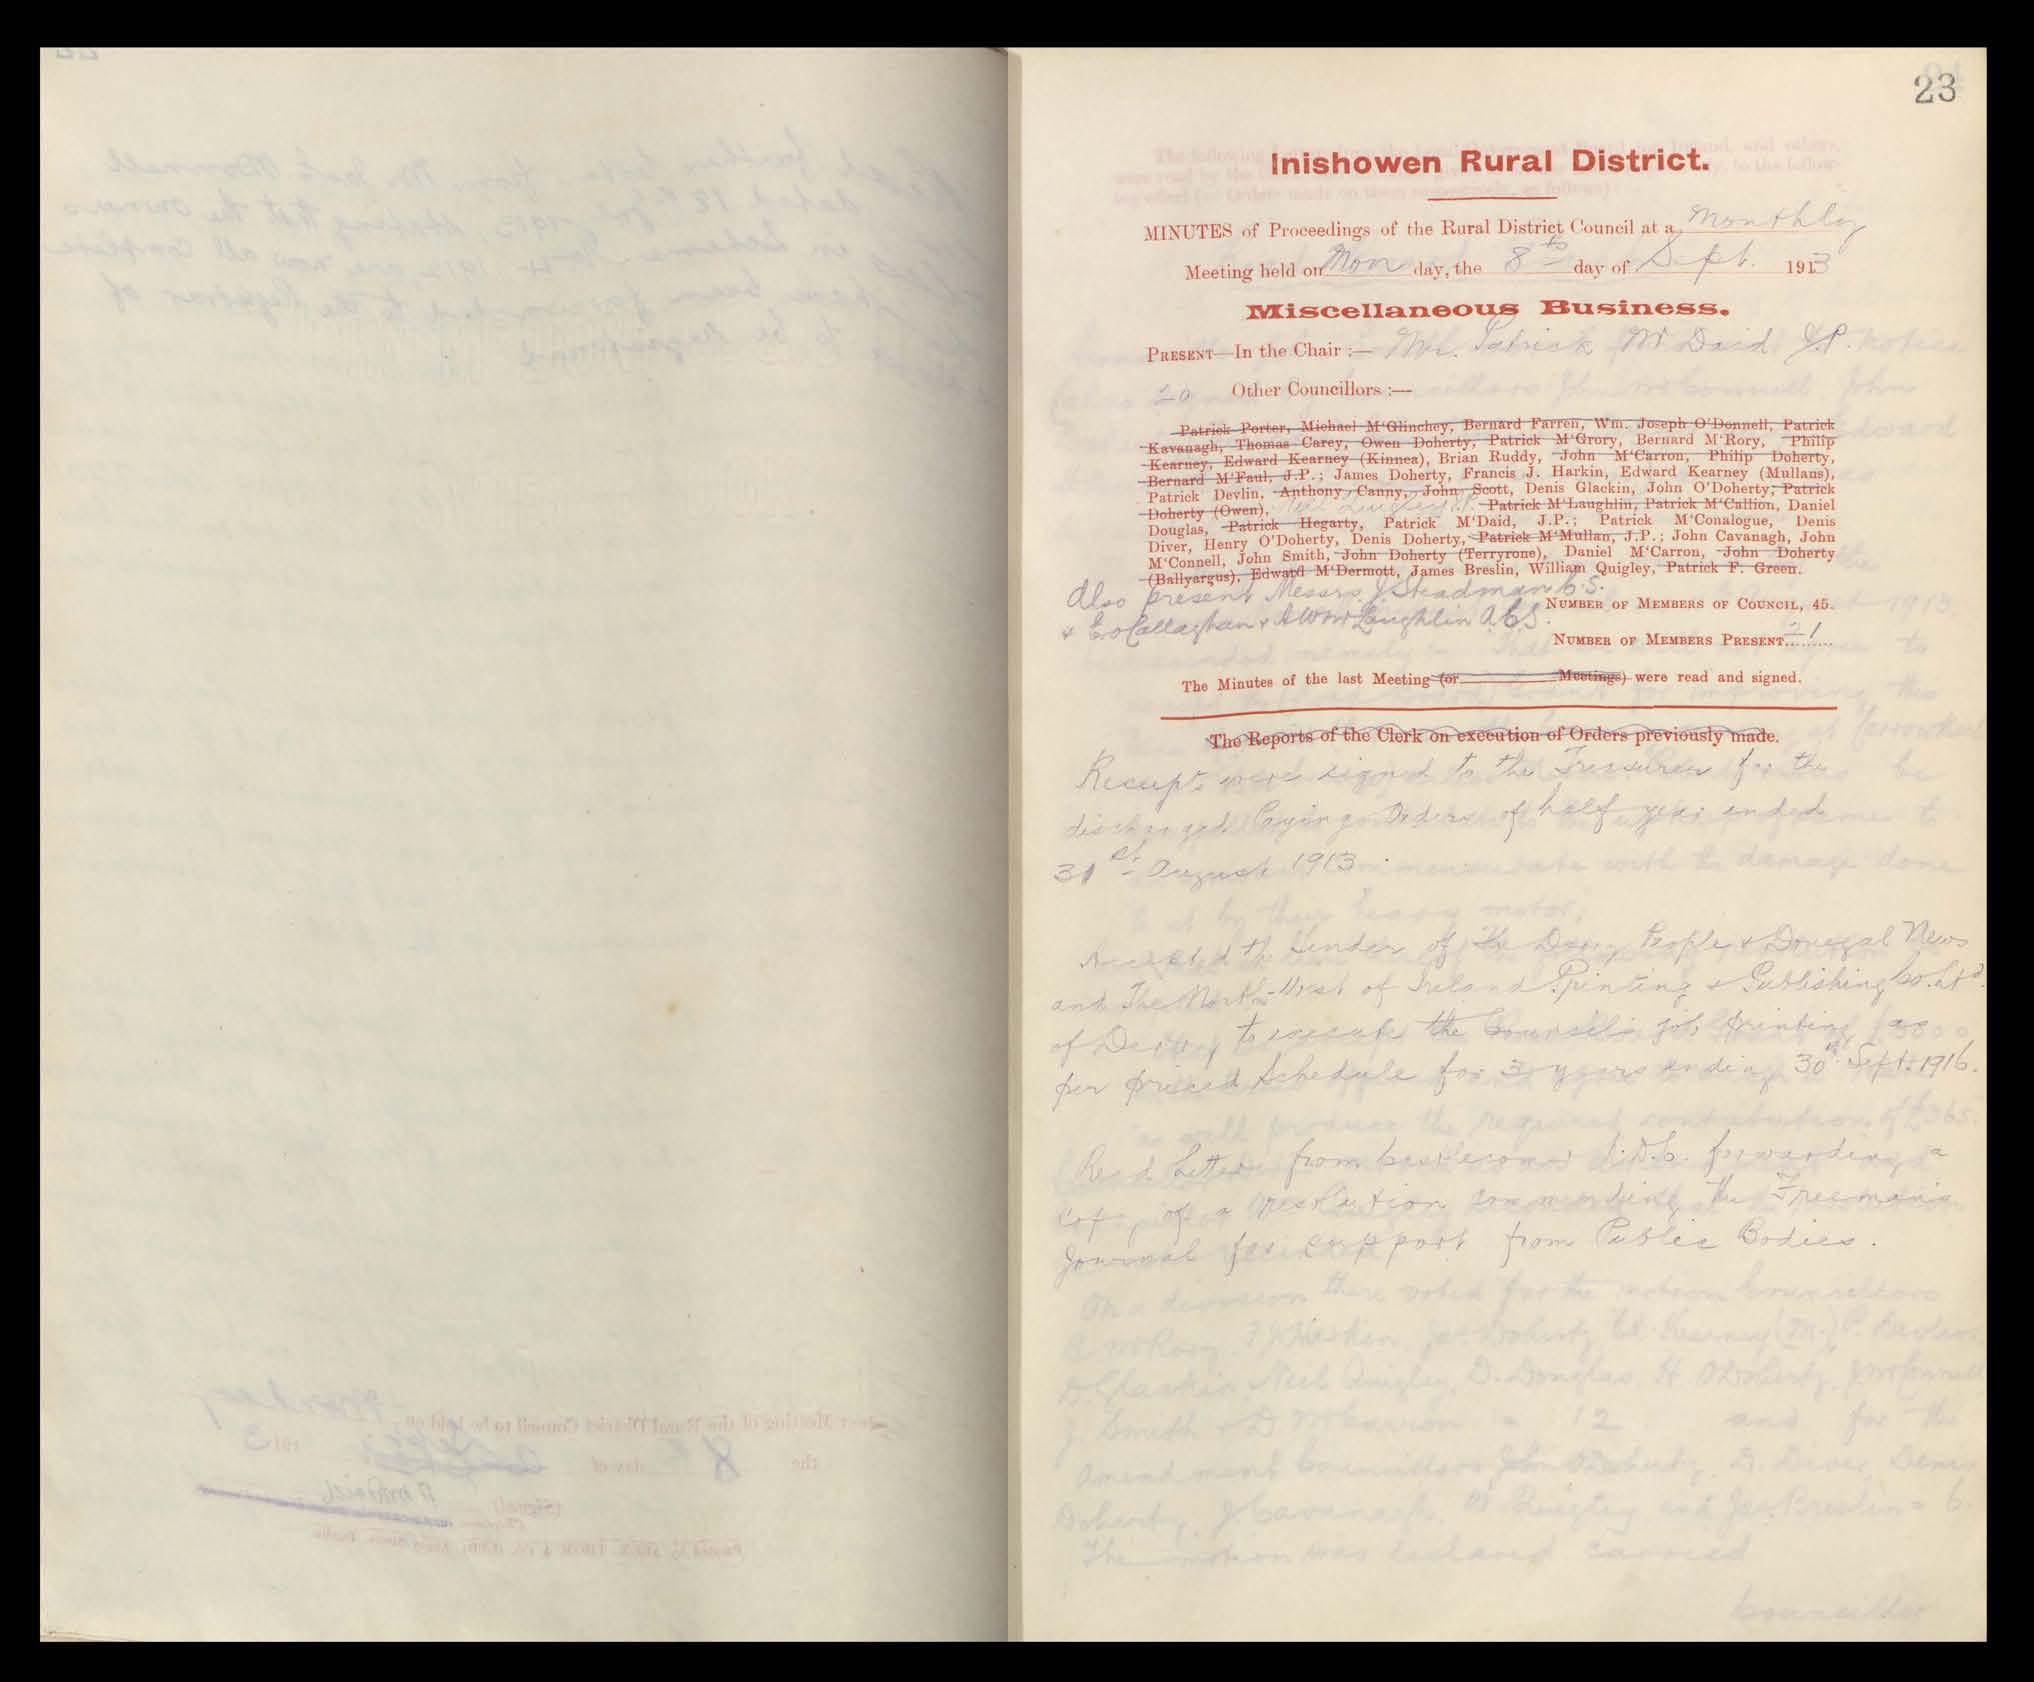 23
Inishowen Rural District.
MINUTES of Proceedings of the Rural District Council at a Monthly
Meeting held on Mon day, the 8th day of Sept. 1913
Miscellaneous Business.
PRESENT—In the Chair :— Mr. Patrick McDaid J.P.
20 Other Councillors :—
Patrick Porter, Michael M'Glinchey, Bernard Farren, Wm. Joseph O'Donnell, Patrick
Kavanagh, Thomas Carey, Owen Doherty, Patrick M'Grory, Bernard M'Rory, Philip
Kearney, Edward Kearney (Kinnea), Brian Ruddy, John M'Carron, Philip Doherty,
Bernard M'Faul, J.P.; James Doherty, Francis J. Harkin, Edward Kearney (Mullans),
Patrick Devlin, Anthony Canny, John Scott, Denis Glackin, John O'Doherty, Patrick
Doherty (Owen), Neil Quigley J.P. Patrick M'Laughlin, Patrick M'Callion, Daniel
Douglas, Patrick Hegarty, Patrick M'Daid, J.P.; Patrick M'Conalogue, Denis
Diver, Henry O'Doherty, Denis Doherty, Patrick M'Mullan, J.P.; John Cavanagh, John
M'Connell, John Smith, John Doherty (Terryrone), Daniel M'Carron, John Doherty
(Ballyargus), Edward M'Dermott, James Breslin, William Quigley, Patrick F. Green.
Also present Messrs J Steadman C.S.
& E O'Callaghan & McLaughlin A.C.S.
NUMBER OF MEMBERS OF COUNCIL, 45.
NUMBER OF MEMBERS PRESENT 21
The Minutes of the last Meeting (or Meetings) were read and signed.
The Reports of the Clerk on execution of Orders previously made.
Receipts were signed to the Treasurer for the
discharged Paying Orders of half year ended
31st August 1913.
Accepted the tender of the Derry People & Donegal News
and The North-West of Ireland Printing & Publishing Co. Ltd.
of Derry to execute the Council's job printing as
per priced Schedule for 3 years ending 30th Sept. 1916.
Read letter from Castlecomer R.D.C. forwarding a
copy of a resolution commending the Freeman's
Journal for support from Public Bodies.